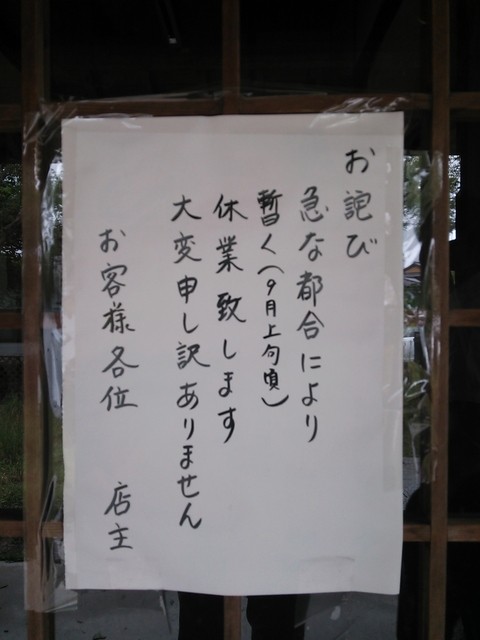 お詫び
急な都合により
暫く(9月上旬頃)
休業致します
大変申し訳ありません
お客様各位 店主